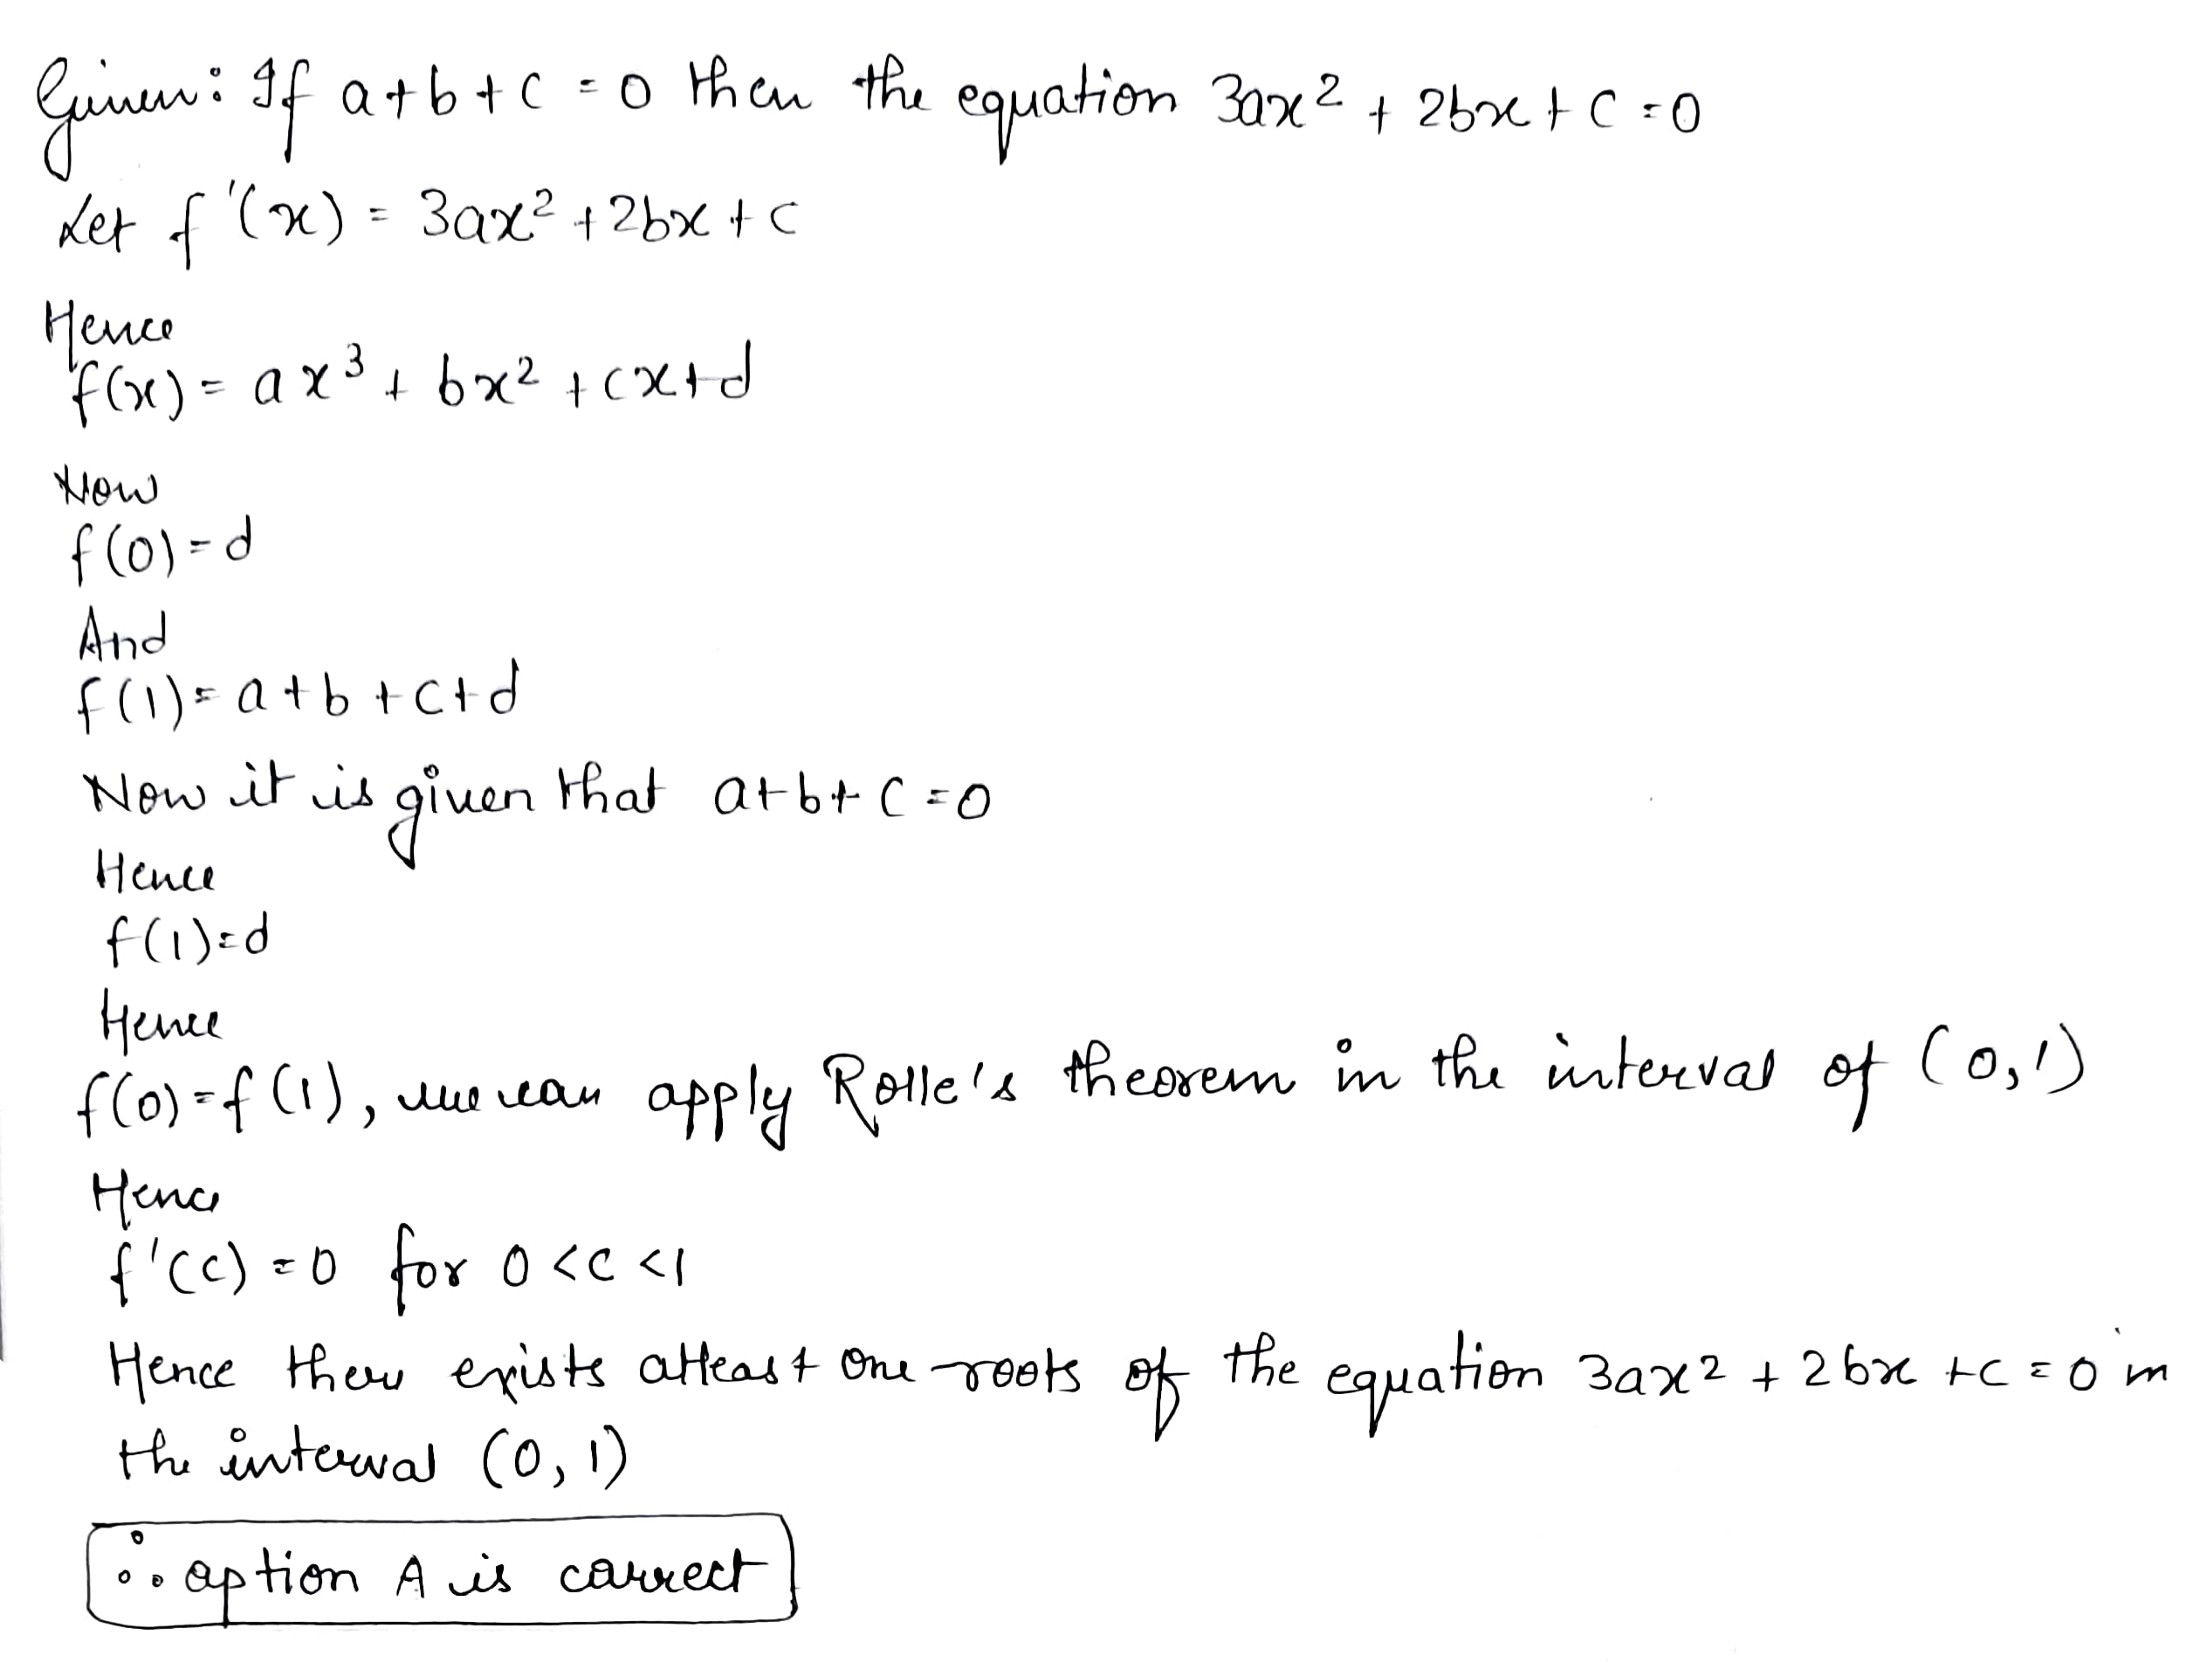 Given: If a+b+c=0 then the equation 3ax² + 2bx+c=0
Let f'(x) = 3ax² +2bx+c
Hence
f(x) = ax³ + bx² +cx+d
Now
f(0)=d
And
f(1)=a+b+c+d
Now it is given that a+b+c=0
Hence
f(1)=d
Hence
f(0)=f(1), we can apply Rolle's theorem in the interval of (0,1)
Hence
f'(c)=0 for 0<c<1
Hence there exists atleast one roots of the equation 3ax² + 2bx +c=0 in
the interval (0,1)
∴ option A is correct